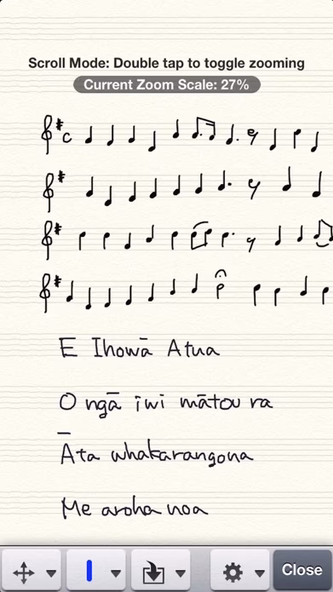 Scroll Mode: Double tap to toggle zooming
Current Zoom Scale: 27%
E Ihowā Atua
O ngā iwi mātou ra
Āta whakarangona
Me aroha noa
Close